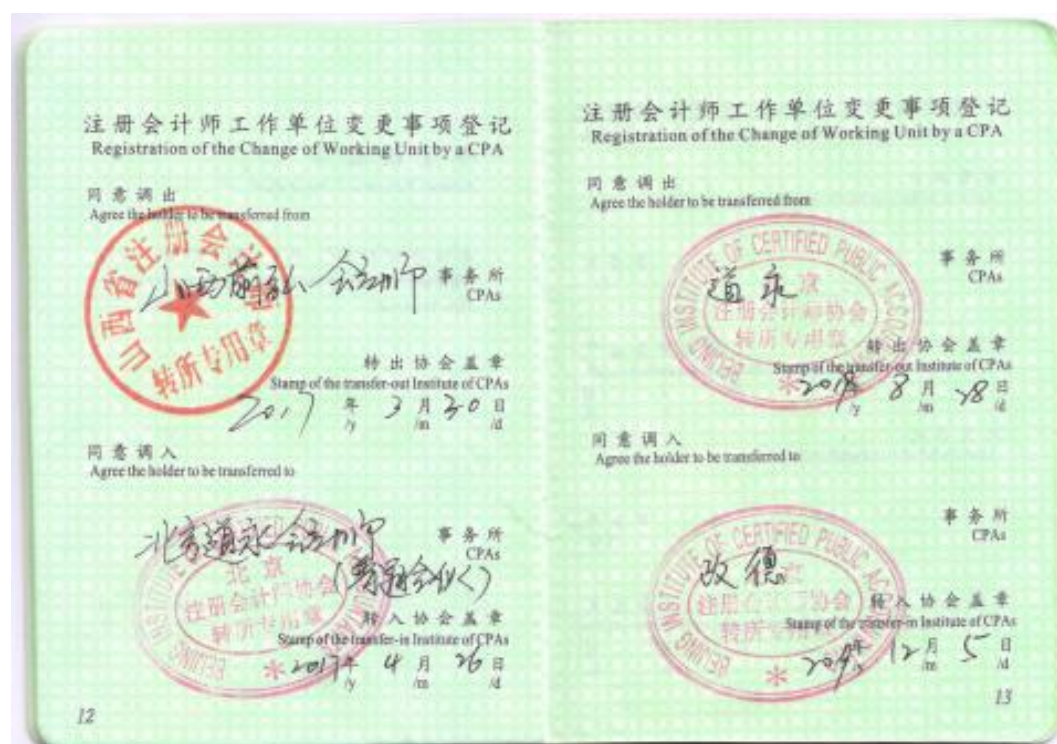 注册会计师工作单位变更事项登记
Registration of the Change of Working Unit by a CPA
同意调出
Agree the holder to be transferred from
山西省注册会计师协会
转所专用章
事务所
CPAs
转出协会盖章
Stamp of the transfer-out Institute of CPAs
2017年3月30日
/y /m /d
同意调入
Agree the holder to be transferred to
北京道永会计师
事务所
CPAs
(普通合伙)
BEIJING INSTITUTE OF CERTIFIED PUBLIC
北京
注册会计师协会
转所专用章
转入协会盖章
Stamp of the transfer-in Institute of CPAs
2017年4月26日
/y /m /d
12
注册会计师工作单位变更事项登记
Registration of the Change of Working Unit by a CPA
同意调出
Agree the holder to be transferred from
BEIJING INSTITUTE OF CERTIFIED PUBLIC
道永
事务所
CPAs
京
注册会计师协会
转所专用章
转出协会盖章
Stamp of the transfer-out Institute of CPAs
8月28日
/y /m /d
同意调入
Agree the holder to be transferred to
BEIJING INSTITUTE OF CERTIFIED PUBLIC
事务所
CPAs
德
注册会计师协会
转所专用章
转入协会盖章
Stamp of the transfer-in Institute of CPAs
12月5日
/y /m /d
13